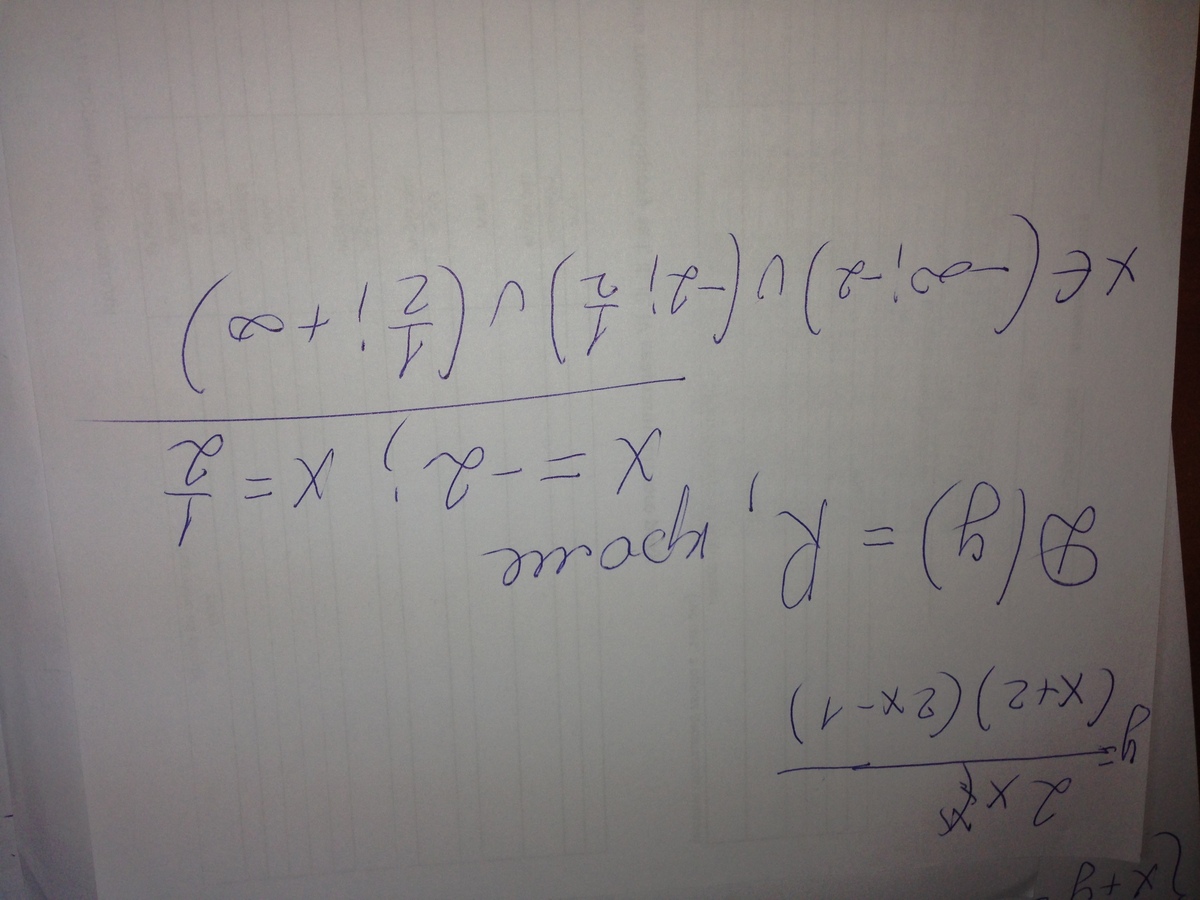 {x+y
y= 2x / (x+2)(2x-1)
D(y) = R, кроме
x = -2; x = 1/2
x∈(-∞; -2)∪(-2; 1/2)∪(1/2; +∞)